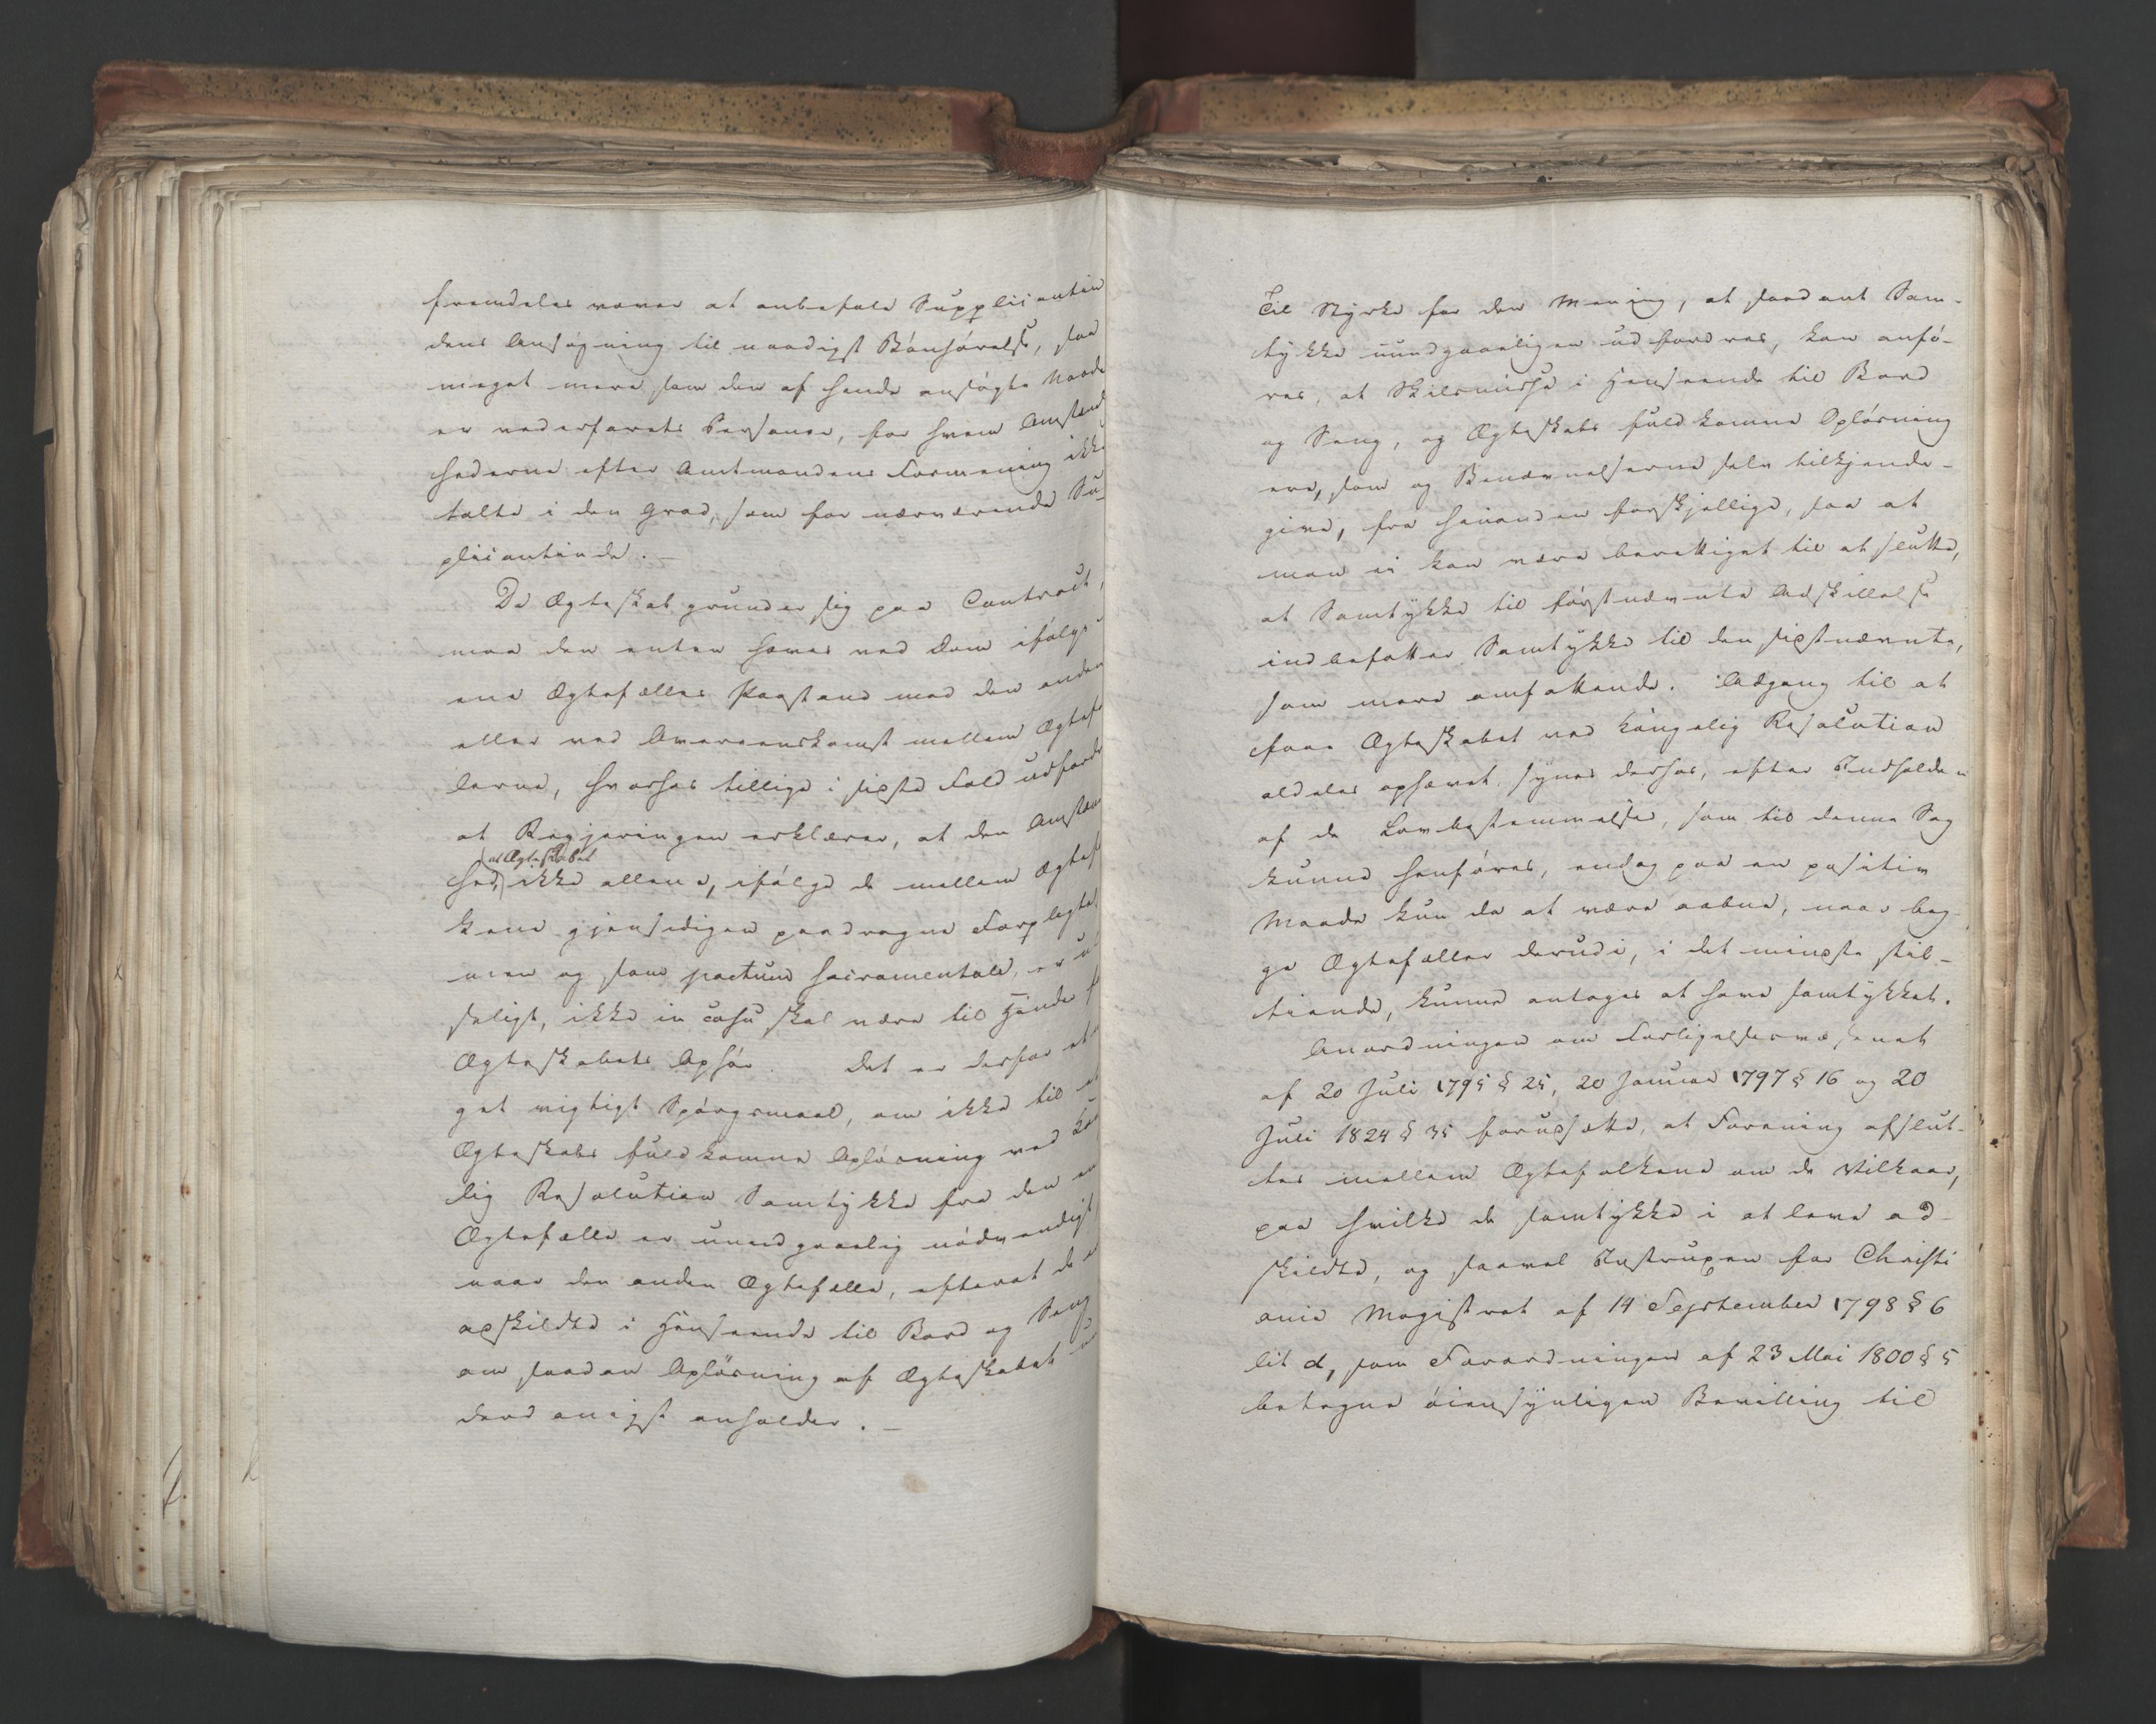 fremdeles vover at anbefale Supplicantin
dens Ansøgning til naadigst Bønhørelse, saa
meget mere som den af hende ansøgte Naade
er vederfaret Personer, for hvem Omstæn
hederne efter Amtmandens Formening ikke
talte i den Grad, som for nærværende Su-
plicantinde. —
Da Ægteskab grunder sig paa Contract,
maa den enten hæves ved Dom ifølge
ene Ægtefælles Paastand mod den anden
eller ved Overeenskomst mellem Ægtefæl
lerne, hvorhos tillige i sidste Fald udfordr
at Regjeringen erklærer, at den Omstæn
hed, at Ægteskabet ikke allene, ifølge de mellem Ægtef
kene gjensidigen paadragne Forpligtel
men og som pactum sacramentale, er u
seligt, ikke in casu skal være til Hinder f
Ægteskabets Ophør. Det er derfor et
get vigtigt Spørgsmaal, om ikke til et
Ægteskabs fuldkomne Opløsning ved Kon
lig Resolution Samtykke fra den en
Ægtefælle er uundgaaelig nødvendigt,
naar den anden Ægtefælle, efterat de e
adskildte i Henseende til Bord og Seng
om saadan Opløsning af Ægteskabet un
derdanigst anholder. —
Til Styrke for den Mening, at saadant Sam-
tykke uundgaaeligen udfordres, kan anfø-
res, at Skilsmisse i Henseende til Bord
og Seng, og Ægteskabs fuldkomne Opløsning
ere, som og Benævnelserne selv tilkjende-
give, fra hinanden forskjellige, saa at
man ei kan være berettiget til at slutte,
at Samtykke til førstnævnte Adskillelse
indbefatter Samtykke til den sidstnævnte,
som mere omfattende. Adgang til at
faae Ægteskabet ved kongelig Resolution
aldeles ophævet synes derhos, efter Indholden
af de Lovbestemmelser, som til denne Sag
kunne henføres, endog paa en positiv
Maade kun da at være aaben, naar beg-
ge Ægtefæller derudi, i det mindste stil-
tiende, kunne antages at have samtykket.
Anordningen om Forligelsesvæsenet
af 20 Juli 1795 § 25, 20 Januar 1797 § 16 og 20
Juli 1824 § 35 forudsætte, at Forening afslut-
tes mellem Ægtefolkene om de Vilkaar,
paa hvilke de samtykke i at leve ad-
skildte, og saavel Instruxen for Christi
ania Magistrat af 14 September 1798 § 6
lit d, som Forordningen af 23 Mai 1800 § 5
betegne øiensynligen Bevilling til